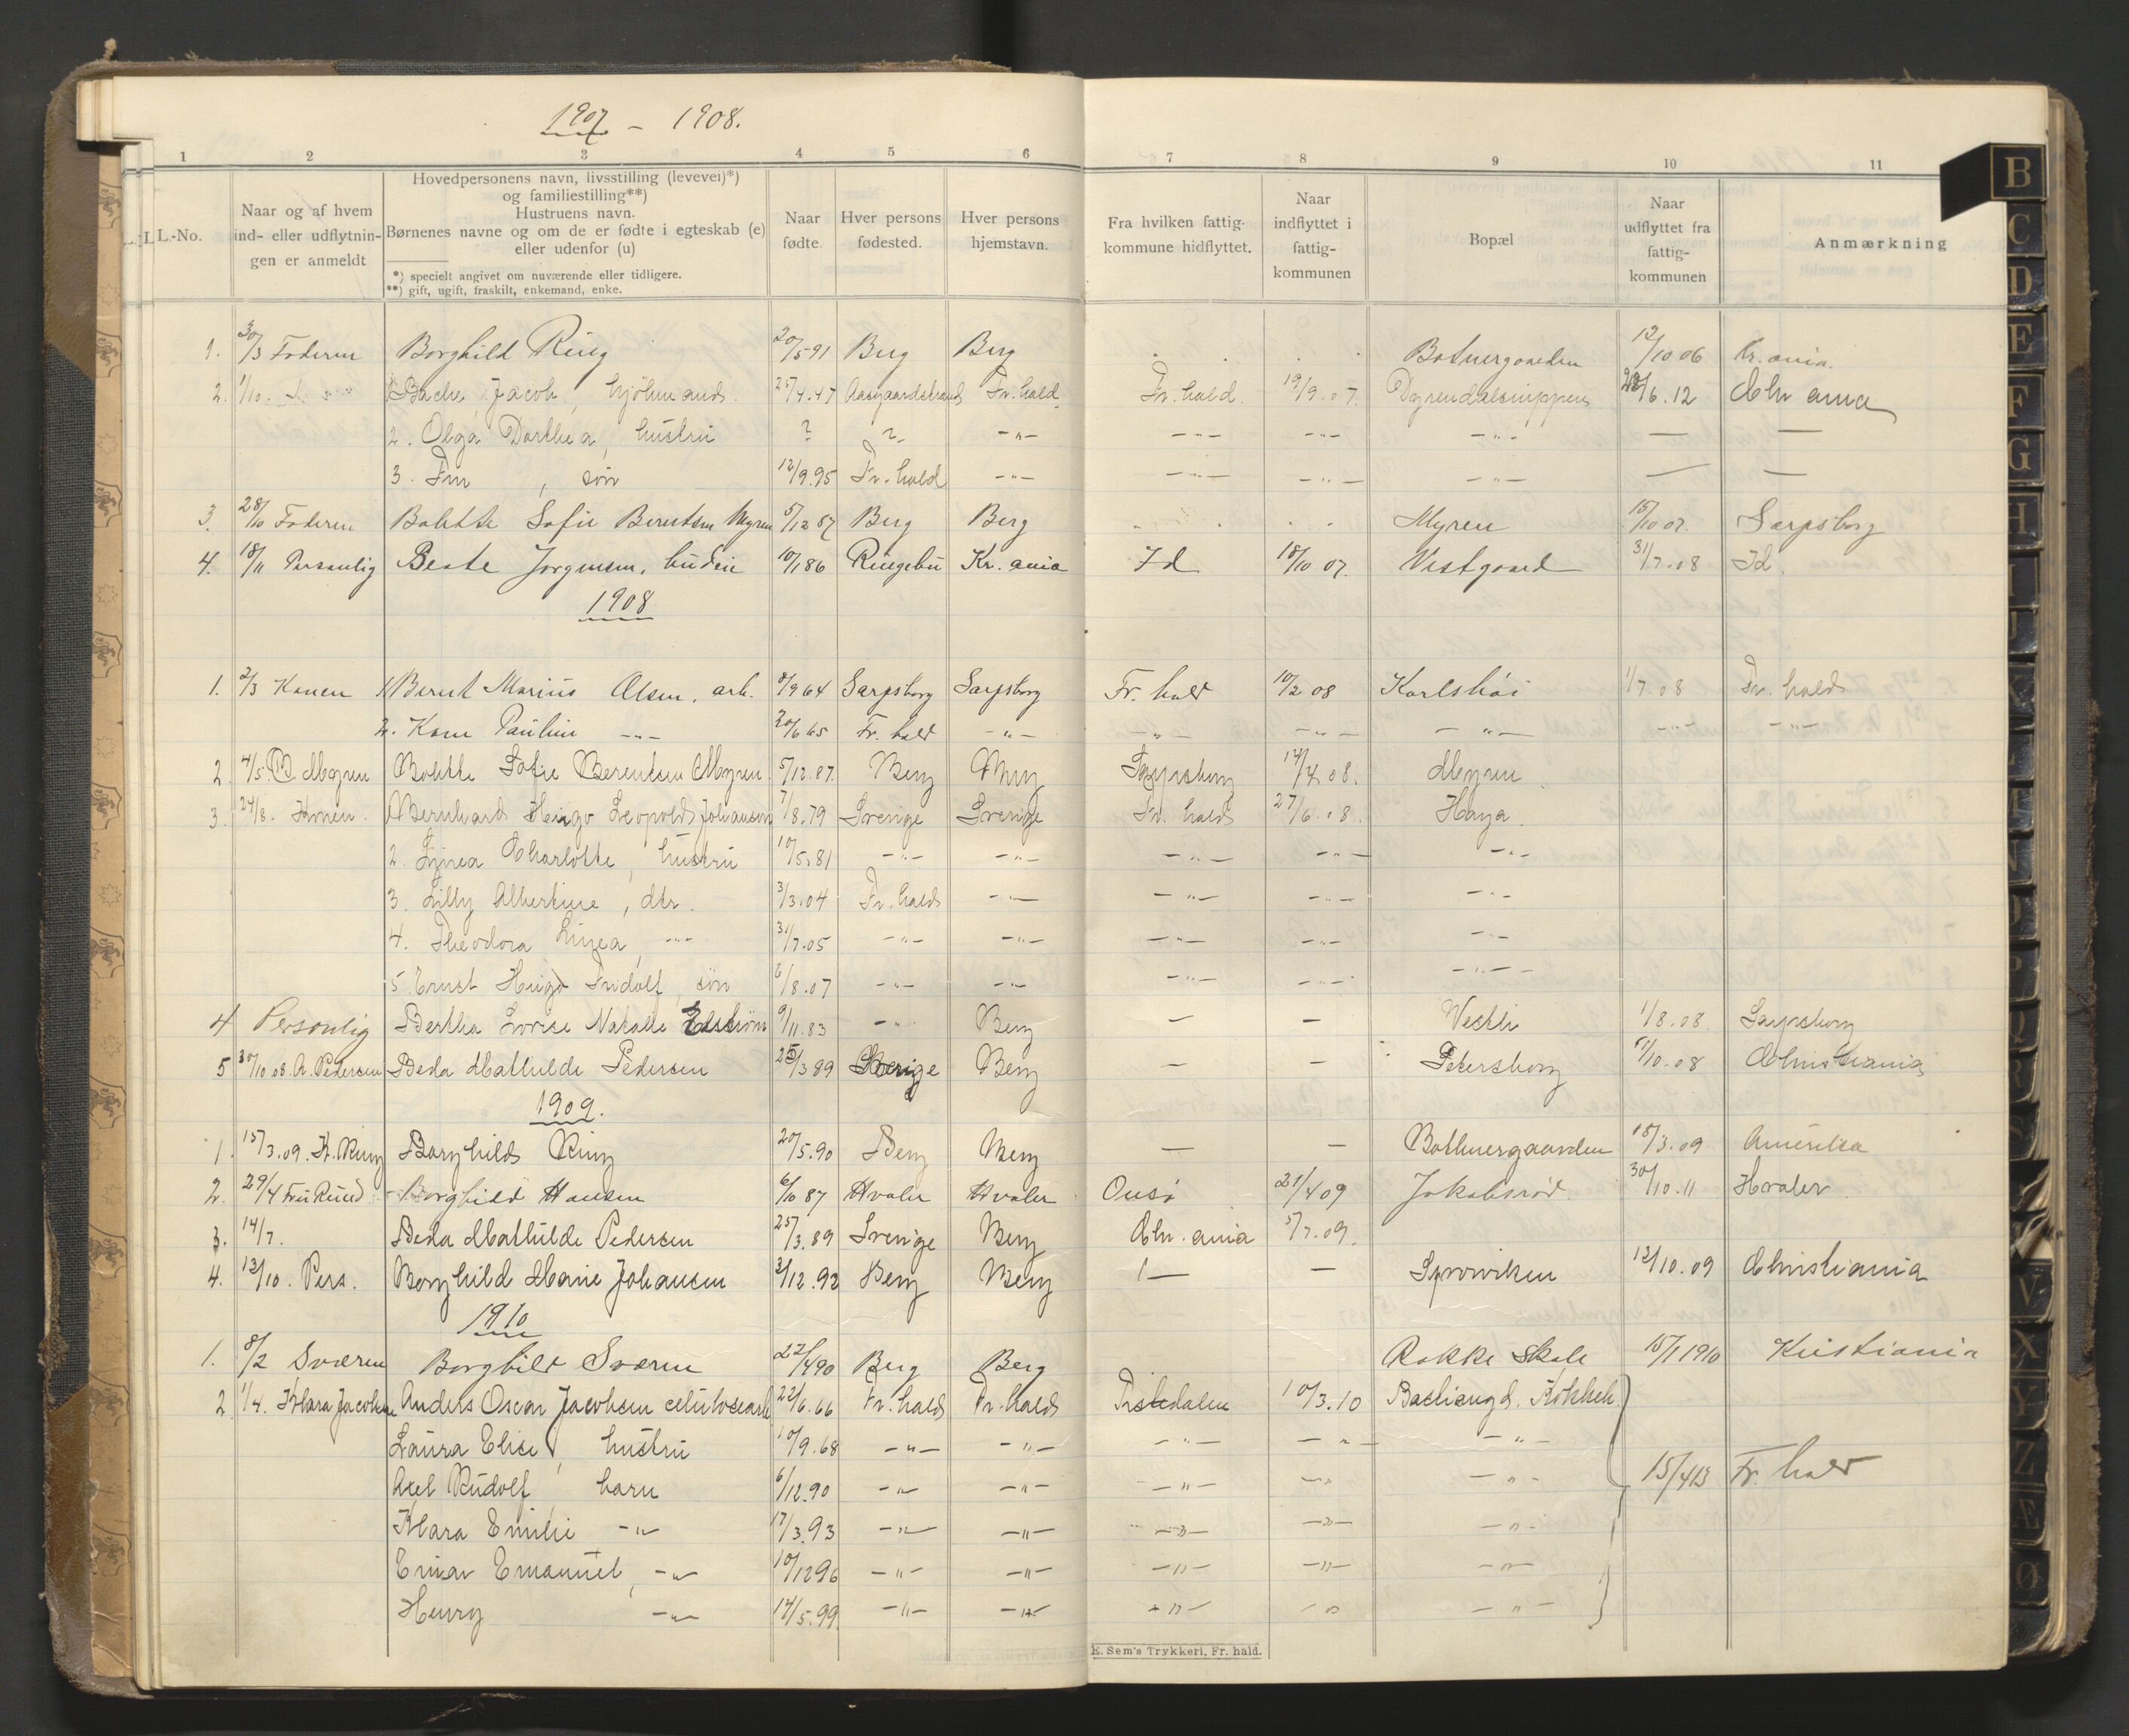 1907 - 1908.
1 2 3 4 5 6 7 8 9 10 11
L.-No.
Naar og af hvem ind- eller udflytnin- gen er anmeldt
Hovedpersonens navn, livsstilling (levevei)*)
og familiestilling**)
Hustruens navn.
Børnenes navne og om de er fødte i egteskab (e)
eller udenfor (u)
*) specielt angivet om nuværende eller tidligere.
**) gift, ugift, fraskilt, enkemand, enke.
Naar fødte.
Hver persons fødested.
Hver persons hjemstavn.
Fra hvilken fattig- kommune hidflyttet.
Naar indflyttet i fattig- kommunen
Bopæl
Naar udflyttet fra fattig- kommunen
Anmærkning
1. 30/3 Faderen Borghild Ring 20/5 91 Berg Berg Botnergaarden 12/10 06 Kr.ania.
2. 1/10. Bache, Jacob, sjømand. 25/4.47 Aasgaardstrand Fr.hald Fr.hald. 19/9.07. 28/6.12 Chr ania
2. Olga Dorthea, hustru ? ? -"- -"- -"- -"- — —
3. Finn, søn 12/9.95 Fr.hald -"- -"- -"- -"- — —
3. 28/10 Faderen Bolette Sofie Berentsen Myren 5/12 87 Berg Berg Myren 15/10 07. Sarpsborg
4. 18/11 Personlig Beate Jørgensen, budeie 10/1 86 Ringebu Kr.ania Id 18/10 07. Vestgaard 31/7.08 Id.
1908
1. 2/3 Konen 1/ Bernt Marius Olsen, arb. 8/9 64 Sarpsborg Sarpsborg Fr.hald 10/2 08 Karlshøi 1/7.08 Fr.hald
2. Kone Pauline -"- 20/6 65 Fr.hald -"- -"- -"- -"- -"- -"-
2. 4/5. B. Myren Bolette Sofie Berentsen Myren 5/12.87. Berg Berg Sarpsborg 14/4.08. Myren
3. 24/8. Konen. Bernhard Hugo Leopold Johanson 7/8.79 Sverige Sverige Fr.hald 27/6.08. Haga.
2. Linea Charlotte, hustru 10/5.81 -"- -"- -"- -"- -"-
3. Lilly Albertine, dtr. 3/3.04 Fr.hald -"- -"- -"- -"-
4. Theodora Linea, -"- 31/7.05 -"- -"- -"- -"- -"-
5. Ernst Hugo Fridolf, søn 6/8.07 -"- -"- -"- -"- -"-
4 Personlig Bertha Lovise Natalie Elstrøm 9/11.83 -"- Berg — — Vestli 1/8.08. Sarpsborg
5 30/10 08. A. Pedersen Beda Mathilde Pedersen 25/3 89 Sverige Berg — — Petersborg 5/10.08 Christiania
1909.
1. 15/3.09. K. Ring Borghild Ring 20/5.90 Berg Berg — — Bothnergaarden 18/3.09 Amerika
2. 29/4 Fru Rund Borghild Hansen 6/10 87 Hvaler Hvaler Onsø 21/4 09 Jakobsrød. 30/10.11 Hvaler
3. 14/7. Beda Mathilde Pedersen 25/3.89 Sverige Berg Chr.ania 5/7.09.
4. 12/10. Pers. Borghild Marie Johansen 3/12.92 Berg Berg — — 12/10.09 Christiania
1910
1. 8/2 Sværen Borghild Sværen 22/4 90 Berg Berg Rokke Skole 15/1 1910 Kristiania
2 1/4. Klara Jacobsen Anders Oscar Jacobsen celulosearb 22/6.66 Fr.hald Fr.hald Tistedalen 10/3.10
Laura Elise, hustru 10/9.68 -"- -"- -"- -"- -"-
Axel Rudolf, barn 6/12.90 -"- -"- -"- -"- -"- 15/4 13 Fr.hald
Klara Emilie -"- 17/3.93 -"- -"- -"- -"- -"-
Einar Emanuel, -"- 10/12 96 -"- -"- -"- -"- -"-
Henry -"- 14/5.99. -"- -"- -"- -"- -"-
E. Sem's Trykkeri, Fr. hald.
B
C
D
E
F
G
H
I
V
X
Y
Z
Æ
Ø